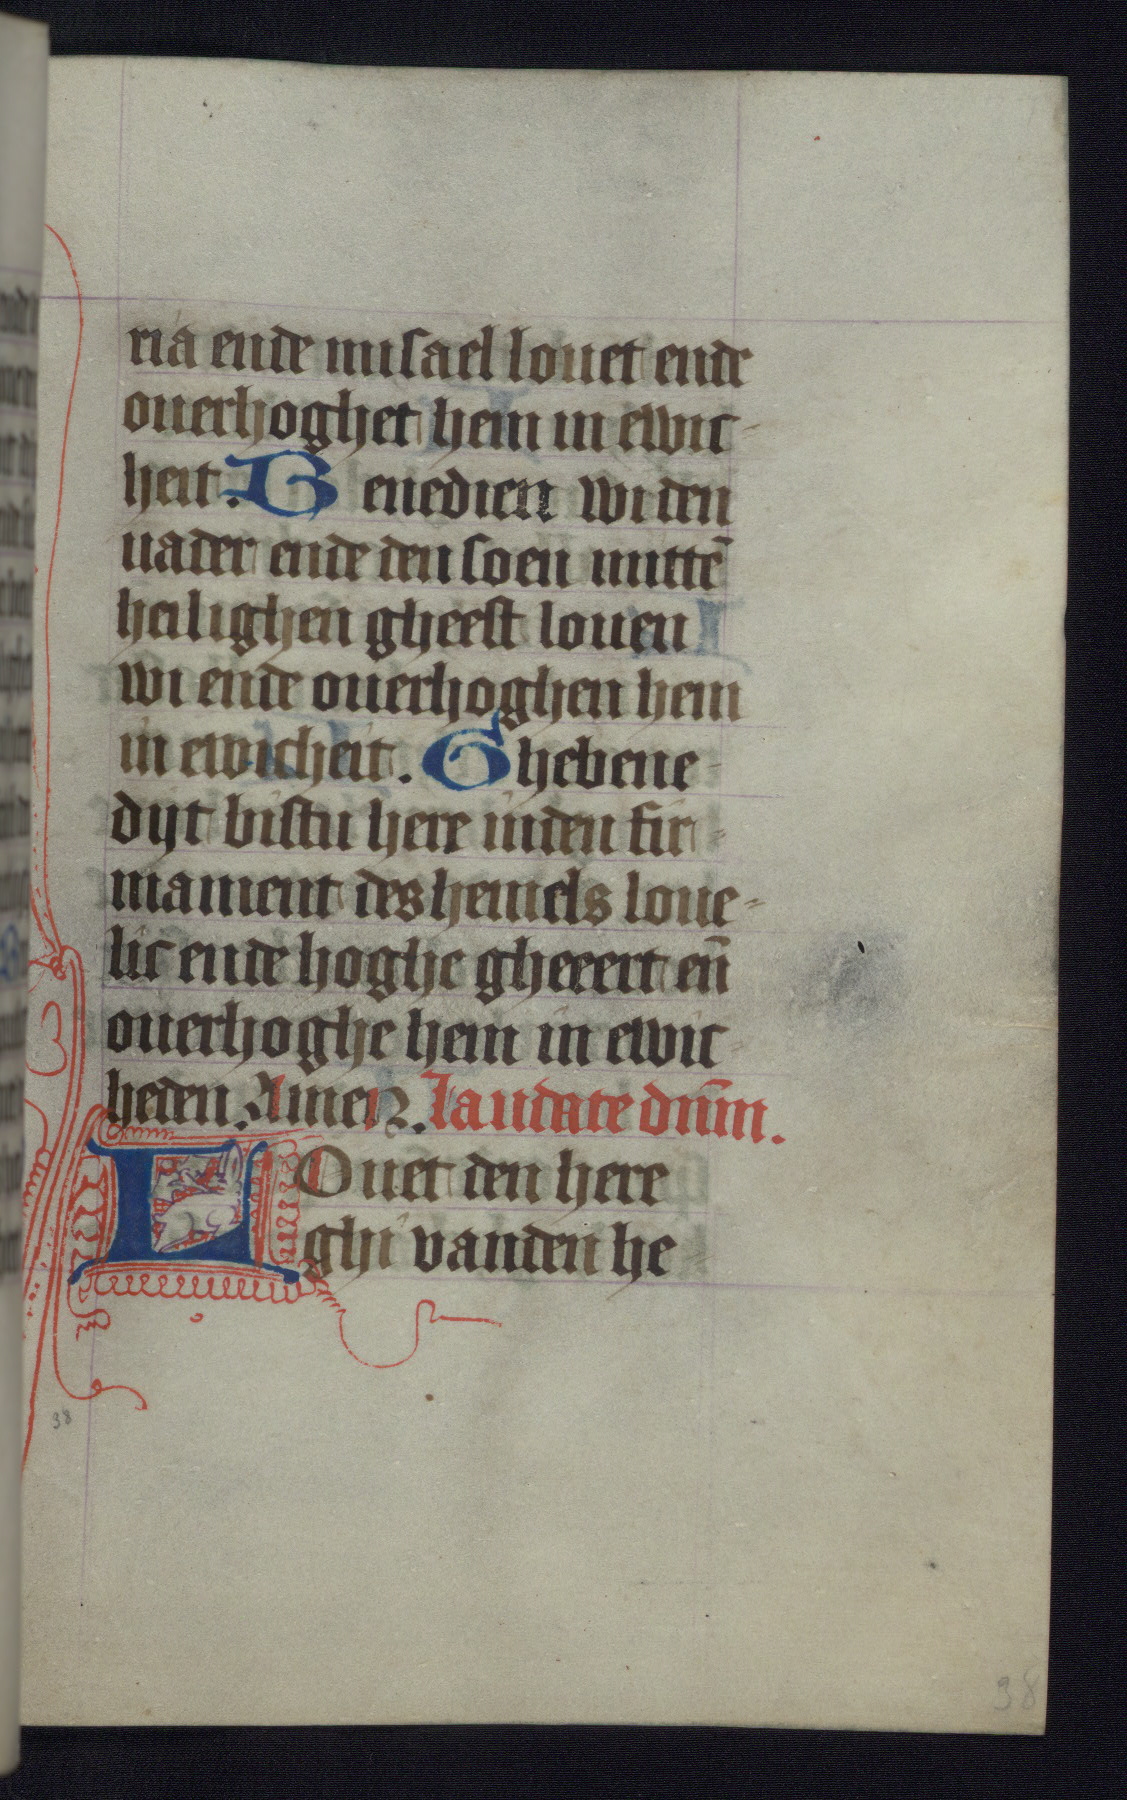 ria ende misael louet ende
ouerhoghet hem in ewic-
heit. Benedien wi den
uader ende den soen mittē
heilighen gheest louen
wi ende ouerhoghen hem
in ewicheit. Ghebene-
dijt bistu here inden fir-
mament des hemels loue-
lic ende hoghe gheeert en̄
ouerhoghe hem in ewic-
heden. Amen. laudate dn̄m.
LOuet den here
ghi vanden he-
38
38